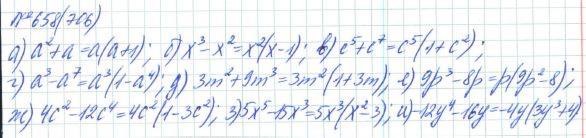 №658(706)
а) a²+a=a(a+1); б) x³-x²=x²(x-1); в) c⁵+c⁷=c⁵(1+c²);
г) a³-a⁷=a³(1-a⁴); д) 3m²+9m³=3m²(1+3m); е) 9p³-8p=p(9p²-8);
ж) 4c²-12c⁴=4c²(1-3c²); з) 5x⁵-15x³=5x³(x²-3); и) -12y⁴-16y=-4y(3y³+4)